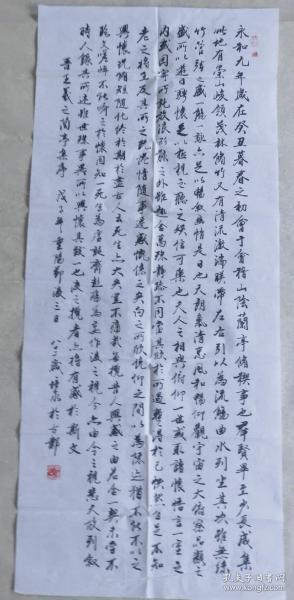 永和九年歲在癸丑暮春之初會于會稽山陰蘭亭脩稧事也羣賢畢至少長咸集
此地有崇山峻領茂林脩竹又有清流激湍暎帶左右引以為流觴曲水列坐其次雖無絲
竹管弦之盛一觴一詠亦足以暢敘幽情是日也天朗氣清惠風和暢仰觀宇宙之大俯察品類之
盛所以遊目騁懷足以極視聽之娛信可樂也夫人之相與俯仰一世或取諸懷抱悟言一室之
內或因寄所託放浪形骸之外雖趣舍萬殊靜躁不同當其欣於所遇暫得於己怏然自足不知
老之將至及其所之既倦情隨事遷感慨係之矣向之所欣俛仰之間以為陳迹猶不能不以之
興懷況脩短隨化終期於盡古人云死生亦大矣豈不痛哉每攬昔人興感之由若合一契未嘗不
臨文嗟悼不能喻之於懷固知一死生為虛誕齊彭殤為妄作後之視今亦由今之視昔悲夫故列敘
時人錄其所述雖世殊事異所以興懷其致一也後之攬者亦將有感於斯文
晉王羲之蘭亭集序 戊子年重陽節後三日 八二歲 於古鄴